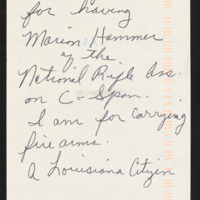 for having
Marion Hammer
of the
National Rifle Ass.
on C=Span.
I am for carrying
fire arms.
A Louisiana Citizin